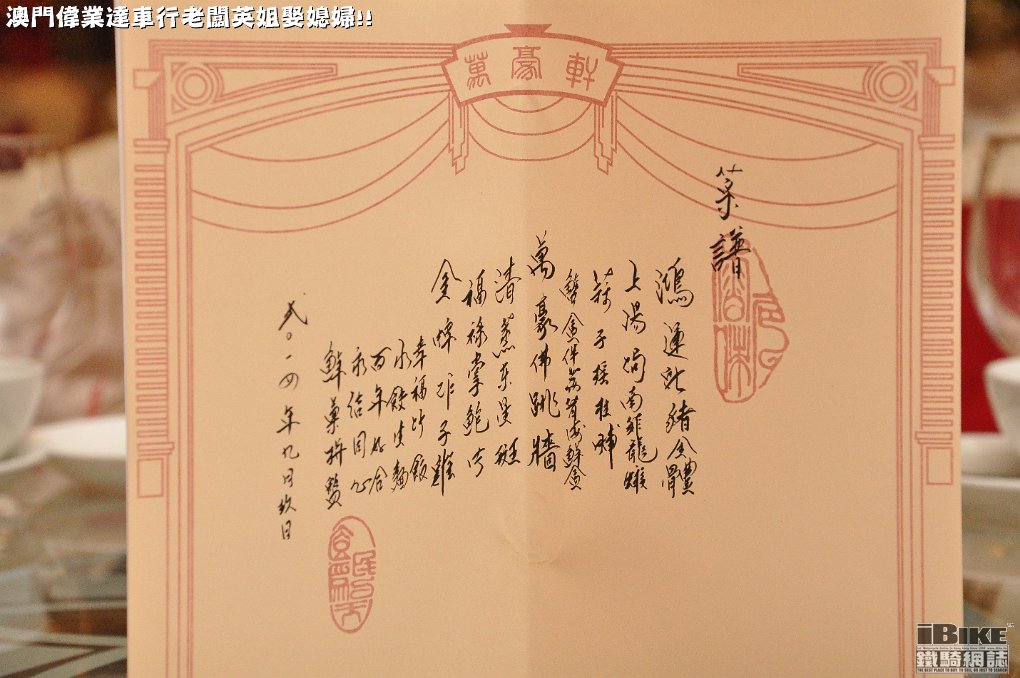 澳門偉業達車行老闆英姐娶媳婦!!
萬豪軒
菜譜
鴻運乳豬全體
上湯焗南非龍蝦
蒜子瑤柱脯
海鮮盒
萬豪佛跳牆
清蒸東星斑
福祿掌鮑片
金牌炸子雞
幸福炒飯
水餃生麵
百年好合
永結同心
鮮菓拼盤
弍〇一四年九月玖日
iBIKE
鐵騎網誌
THE BEST PLACE TO BUY, TO SELL, OR JUST TO SEARCH